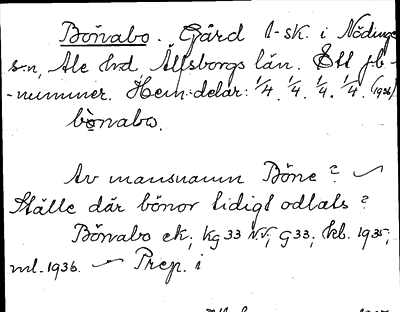 Bönabo. Gård 1-sk. i Nödinge
s:n, Ale hrd Älfsborgs län. Ett jb-
-nummer. Hem.delar: 1/4. 1/4. 1/4. 1/4. (1926)
bònabo.
Av mansnamn Böne?
Ställe där bönor tidigt odlats?
Bönabo ek; Kg 33 NV; G33; kb. 1935;
ml. 1936. — Prep. i